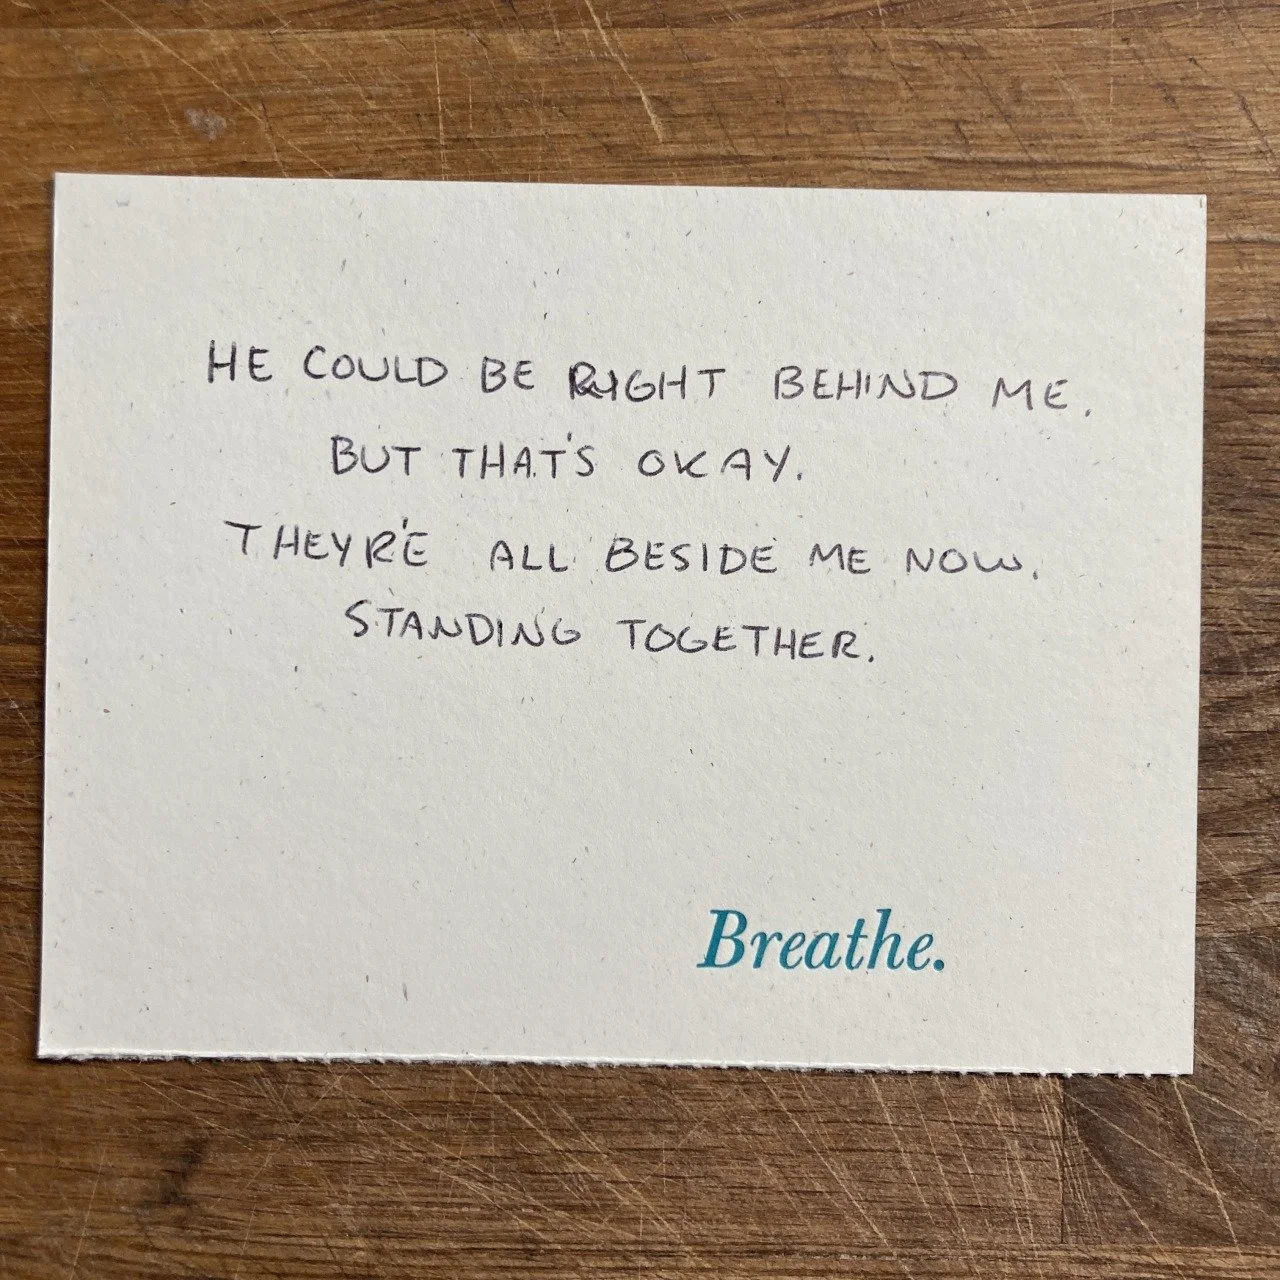 HE COULD BE RIGHT BEHIND ME.
BUT THAT'S OKAY.
THEYR'E ALL BESIDE ME NOW.
STANDING TOGETHER.
Breathe.